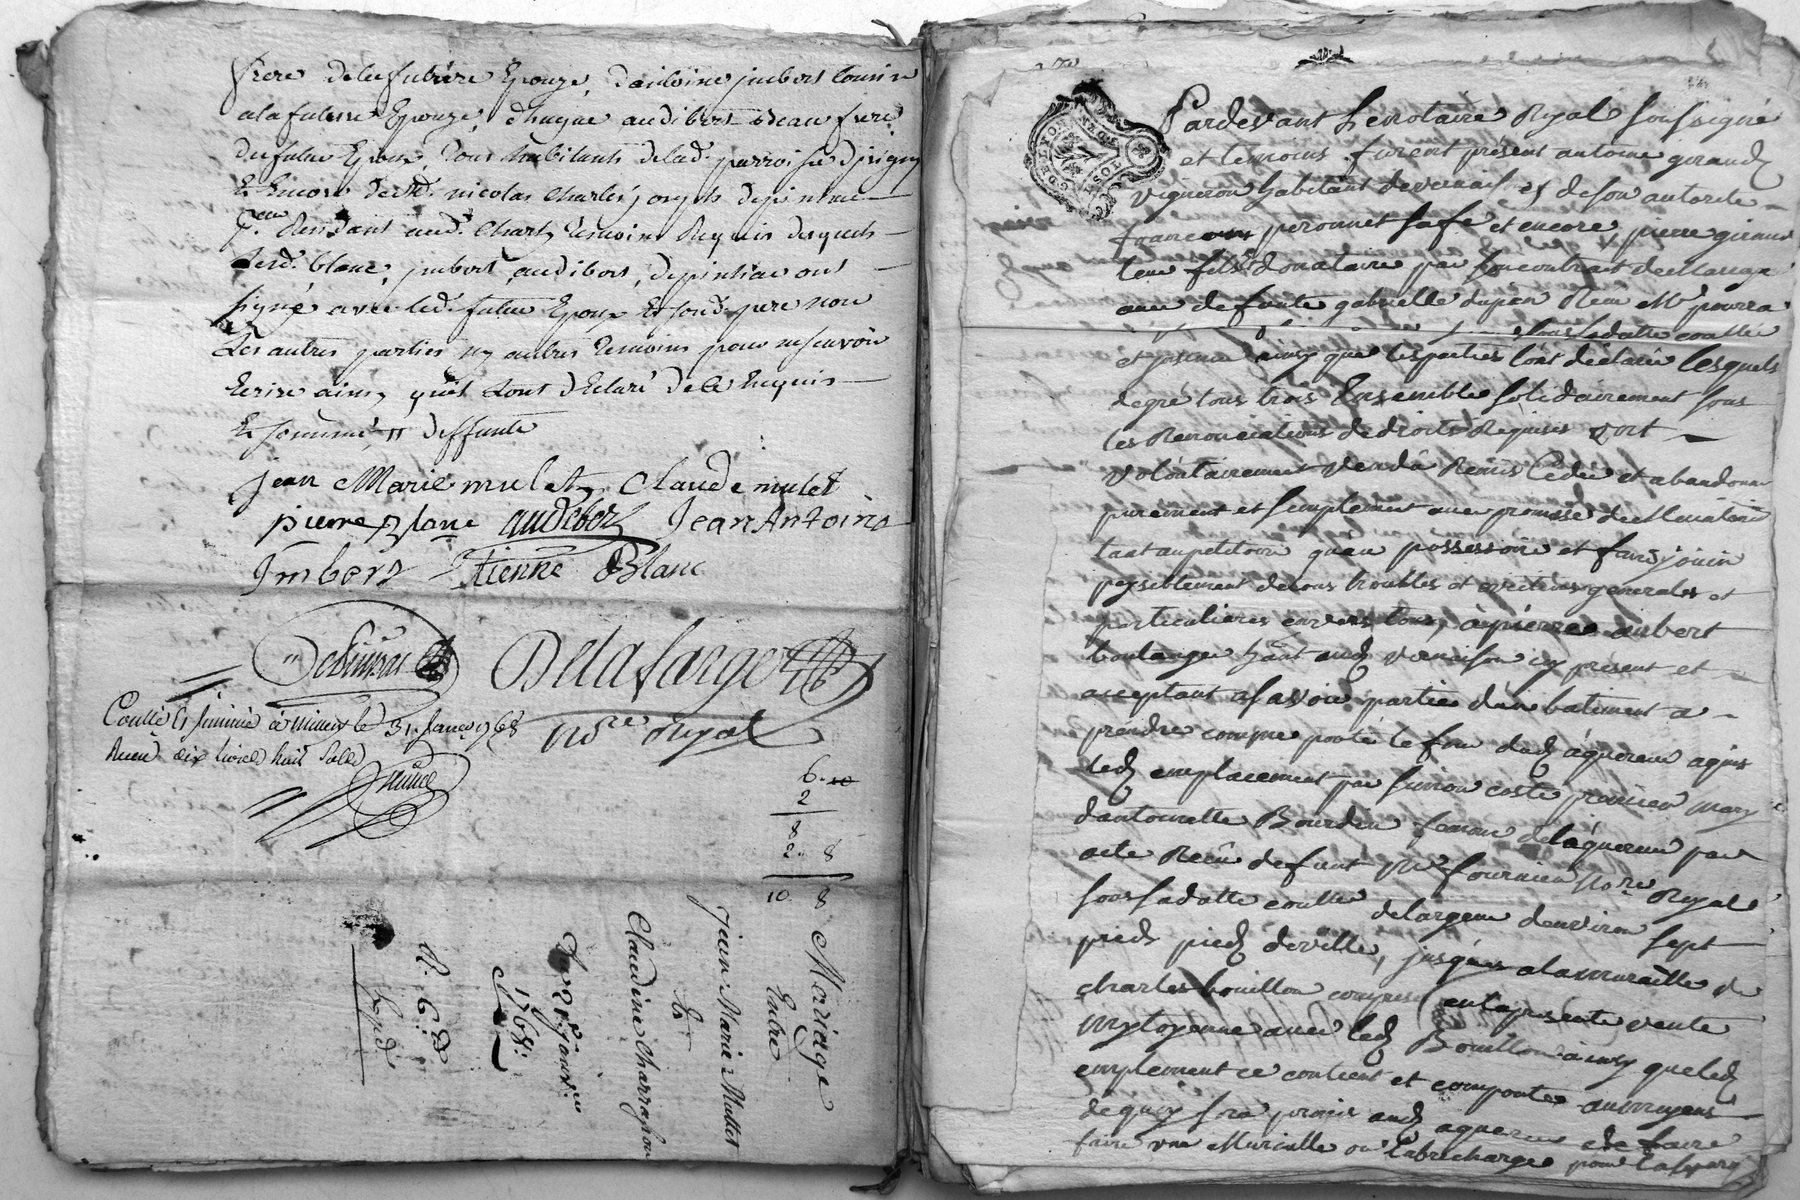 frere de la future Epouze, d'antoine jmbert Cousin
a la future Epouze, audibert beau frere
du futur Epoux, tous habitants de lad. parroisse
Et Encore de Me. nicolas Charles joseph depintrac
Pen. Residant aud. Charly Temoins Requis desquels
Lesd. blanc, jmbert, audibert, depintrac ont
signé avec led. futur Epoux Et sond. pere non
Les autres parties ny autres Temoins pour ne scavoir
Ecrire ainsy qu'ils L'ont dEclaré de ce Enquis
Et sommé, deffunte
jean Marie mulet Claude mulet
pierre Blanc audebert Jean Antoine
Imbert Etienne Blanc
Delafarge
no.re royal
Coullé à le 31 Janv. 1768
Receu dix livres huit sols
6. 10
2
8
2. 8
10 8
Mariage
Entre
Jean-Marie Mullet
Et
Claudine Charrapon
Du 28 janv.er
1768:
DE LYON
Pardevant Le notaire Royal soussigné
et temoins furent présent antoine giraud
vigneron habitant de et de son autorité
francoise peronnet sa fe. et encore pierre giraud
leur fils donataire par son contrait de Mariage
avec defunte gabrielle dupon Receu Me pourra
sous sa datte coullé
et jnsinué ainsy que les parties l'ont déclaré lesquels
de gré tous trois Ensemble solidairement sous
les Renonciations de droits Requises ont
volontairement vendu Remis Cedé et abandonné
purement et simplement avec promesse de Maintenir
tant au petitoire qu'au possessoire et faire jouir
paysiblement de tous troubles et evictions generales et
particulieres envers tous, à pierre aubert
boulanger hant. aud. icy présent et
acceptant a savoir partie d'un batiment a
prendre comme porté le fon dud. áquereur aquis
led. emplacement par simon coste premier mary
d'antoinette Bourdin femme de l'áquereur par
acte Receu defunt Me fournier No.re Royal
sous sa datte coullé de largeur d'environ sept
pieds pied de ville, jusques a la muraille de
charles bouillon comprise en la présente vente
mytoyenne avec led. Bouillon ainsy que led.
emplement ce contient et comporte au moyens
de quoy sera permis aud. aquereur de faire
faire une Muraille ou